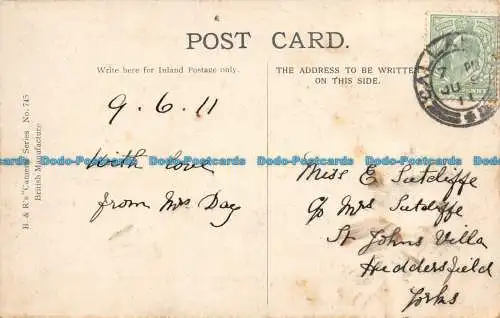 POST CARD.
Write here for Inland Postage only.
THE ADDRESS TO BE WRITTEN
ON THIS SIDE.
B. & R's "Cameo" Series. No. 745
British Manufacture
9.6.11
With love
from Mrs Day
Miss E Sutcliffe
c/o Mrs Sutcliffe
St Johns Villa
Huddersfield
Yorks
Dodo-Postcards Dodo-Postcards Dodo-Postcards Dodo-Postcards